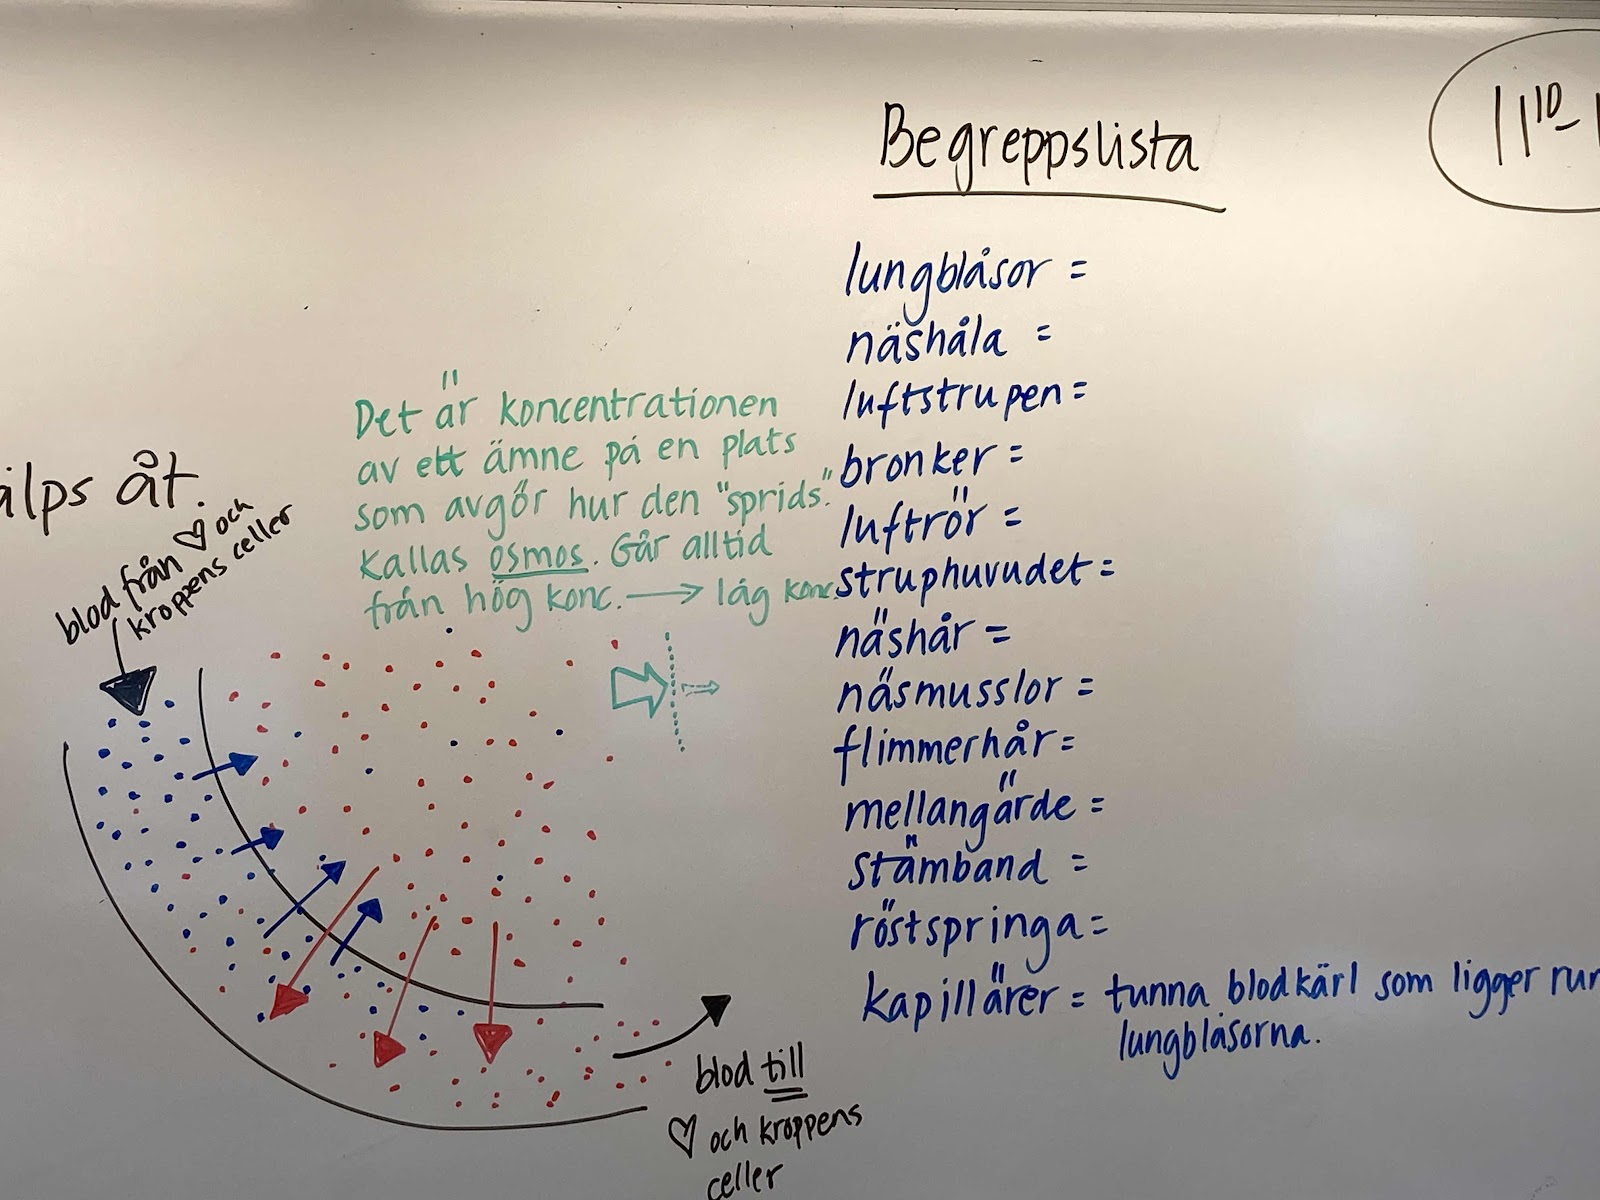 Begreppslista
11 10-
lungblåsor =
näshåla =
luftstrupen =
bronker =
luftrör =
struphuvudet =
näshår =
näsmusslor =
flimmerhår =
mellangärde =
stämband =
röstspringa =
kapillärer = tunna blodkärl som ligger
lungblåsorna.
Det är koncentrationen
av ett ämne på en plats
som avgör hur den "sprids."
Kallas osmos. Går alltid
från hög konc. → låg konc.
åt.
blod från ♡ och
kroppens celler
blod till
♡ och kroppens
celler